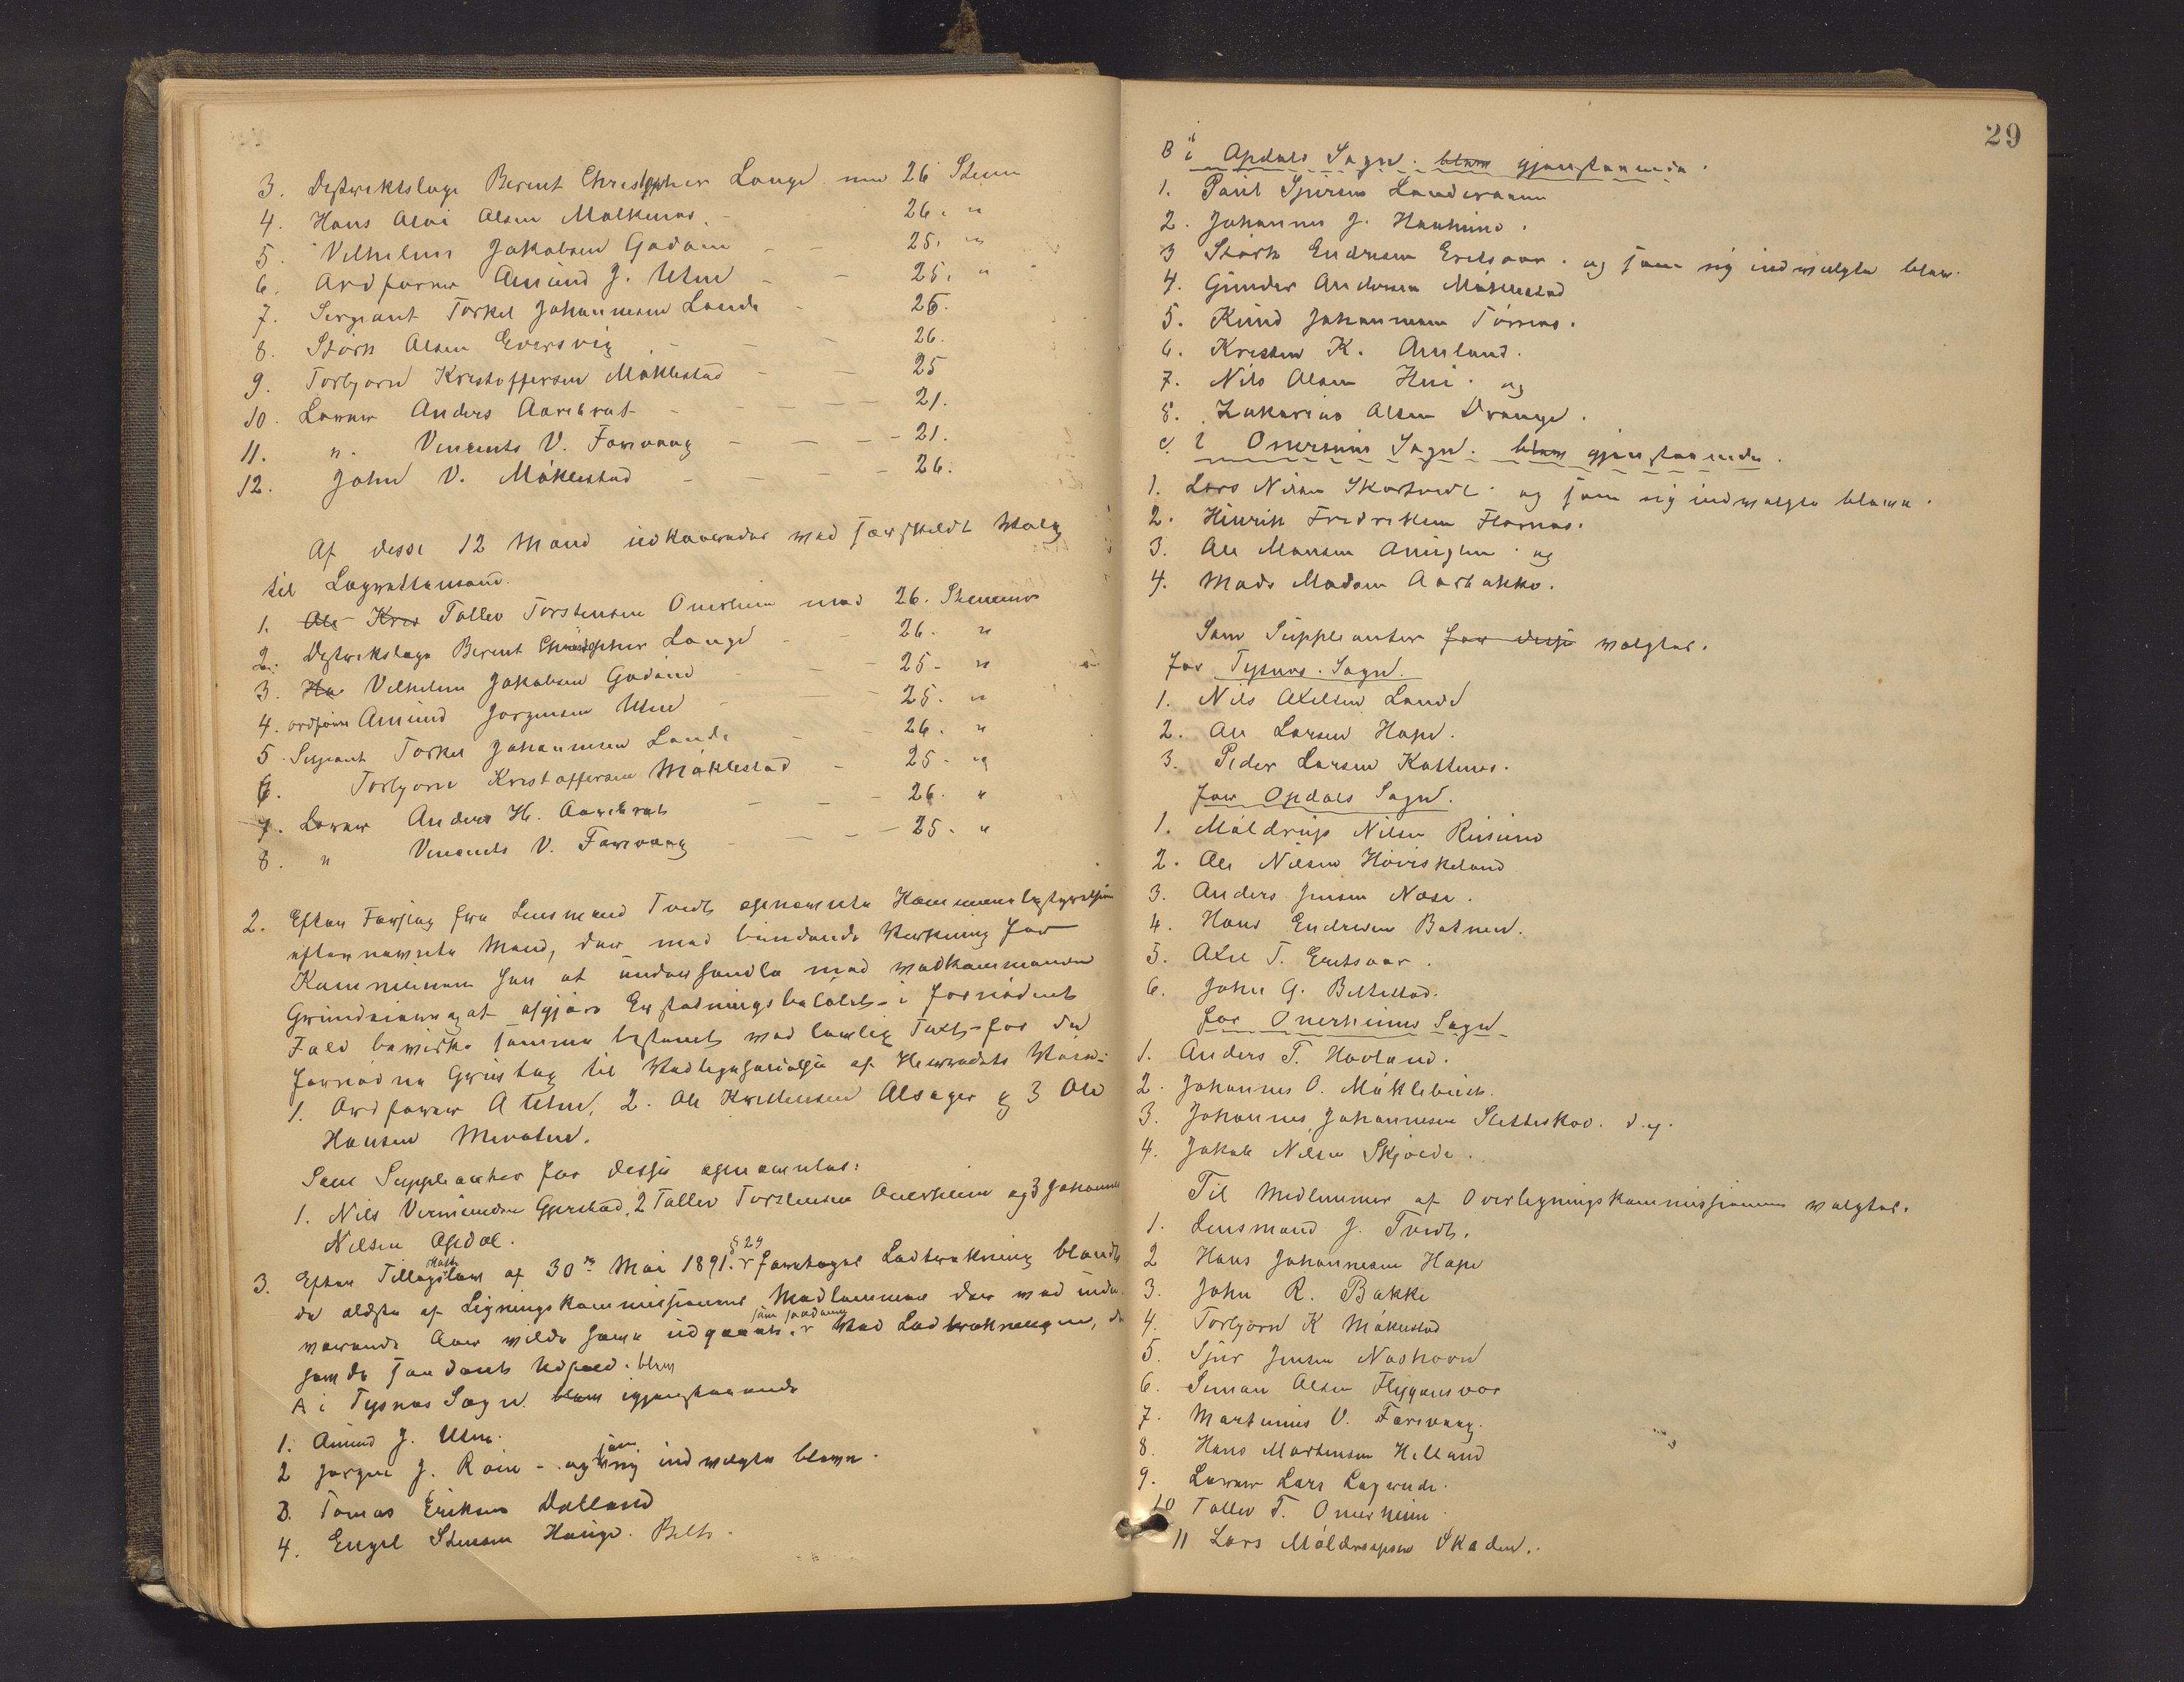 3. Distriktslæge Berent Christopher Lange med 26 Stem
4. Hans Alai Olsen Malkenes - 26. "
5. Vilhelm Jakobsen Gadøien - - 25. "
6. Ordfører Amund J. Utne - - 25. "
7. Sergiant Torkel Johannesen Lande - 26.
8. Størk Olsen Eversvig - - - 26.
9. Torbjørn Kristoffersen Møklestad - - 25
10. Lærer Anders Aarebrot - - - - 21.
11. " Vincents V. Færevaag - - - - 21.
12. John V. Møklestad - - - 26.
Af disse 12 Mænd udkaaredes ved særskildt Valg
til Lagrettemænd.
1. Ole Kres Tollev Torstensen Onerheim med 26. Stemmer
2. Distrikslæge Berent Christopher Lange - - 26. "
3. Ha Vilhelm Jakobsen Gadøien - - 25- "
4. ordfører Amund Jørgensen Utne - - 25. "
5. Sergeant Torkel Johannesen Lande - - 26. "
6. Torbjørn Kristoffersen Møklestad - 25- og
7. Lærer Anders H. Aarebrot - - - 26. "
8. " Vincents V. Færevaag - - - 25. "
2. Efter Forslag fra Lensmand Tvedt opnævnte Kommunebestyrelsen
efternævnte Mænd, der med bindende Virkning for
Kommunen kan at underhandle med vedkommende
Grundeiere og at afgjøre Erstatningsbeløbet - i fornødent
Fald bevirke samme bestemt ved lovlig Taxt - for det
fornødne Grustag til Vedligeholdelse af Herredets Veie:
1. Ordfører A Utne, 2. Ole Kristensen Alsager og 3 Ole
Hansen Mevatne.
Som Suppleanter for disse opnævntes:
1. Nils Vermundsen Gjerstad, 2 Tollev Torstensen Onerheim og 3 Johannes
Nilsen Opdal.
3. Efter Tillægsskattelov af 30te Mai 1891. § 29 foretoges Lodtrækning blandt
de ældste af Ligningskommissionens Medlemmer der ved inde-
værende Aar vilde have udgaaet. som saadanne Ved Lodtrækningen, de
havde saadant Udfald. blev
A i Tysnes Sogn blev igjenstaaende
1. Amund J. Utne.
2 Jørgen J. Røen - og som nyindvalgte bleve.
3. Tomas Eriksen Dalland
4. Engel Stensen Hauge. Belts.
29
B i Opdals Sogn. blev gjenstaaende.
1. Poul Sjursen Landeraaen
2. Johannes J. Haaheim.
3 Størk Endresen Eretsaar. og som nyindvalgte blev.
4. Gunder Andersen Møklestad
5. Knud Johannesen Tornes.
6. Kristen K. Amland.
7. Nils Olsen Hui. og
8. Zakarias Olsen Drange.
C. i Onerheims Sogn. blev gjenstaaende.
1. Lars Nilsen Skartvedt. og som nyindvalgte bleve.
2. Hinrik Fredriksen Flornes.
3. Ole Monsen Anuglen. og
4. Mads Madsen Aarbakke.
Som Suppleanter for disse valgtes.
for Tysnes. Sogn.
1. Nils Axelsen Lande
2. Ole Larsen Hope.
3. Peder Larsen Kattenes.
for Opdals Sogn.
1. Møldrup Nilsen Reisene
2. Ole Nilsen Hoviskeland
3. Anders Jensen Nese.
4. Hans Endresen Botnen.
5. Axel T. Eretsaar.
6. John G. Beltestad.
for Onerheims Sogn
1. Anders T. Hovland.
2. Johannes O. Møklebust.
3. Johannes Johannesen Sletteskov. d.y.
4. Jakob Nilsen Skjoldo.
Til Medlemmer af Overligningskommissionen valgtes.
1. Lensmand J. Tvedt.
2 Hans Johannesen Hope
3. John R. Bakke
4. Torbjørn K Møklestad
5. Sjur Jensen Neshovd
6. Simon Olsen Flygansvær
7. Martinus V. Færevaag.
8. Hans Mortensen Helland
9. Lærer Lars Lagreide.
10 Tollev T. Onerheim
11 Lars Møldrupsen Skaden.